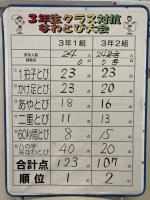 3年生クラス対抗
なわとび大会
3年1組 3年2組
1拍子とび 23 23
かけ足とび 23 20
あやとび 18 16
二重とび 11 13
60秒間とび 8 15
8の字 長なわとび 40 20
合計点 123 107
順位 1 2